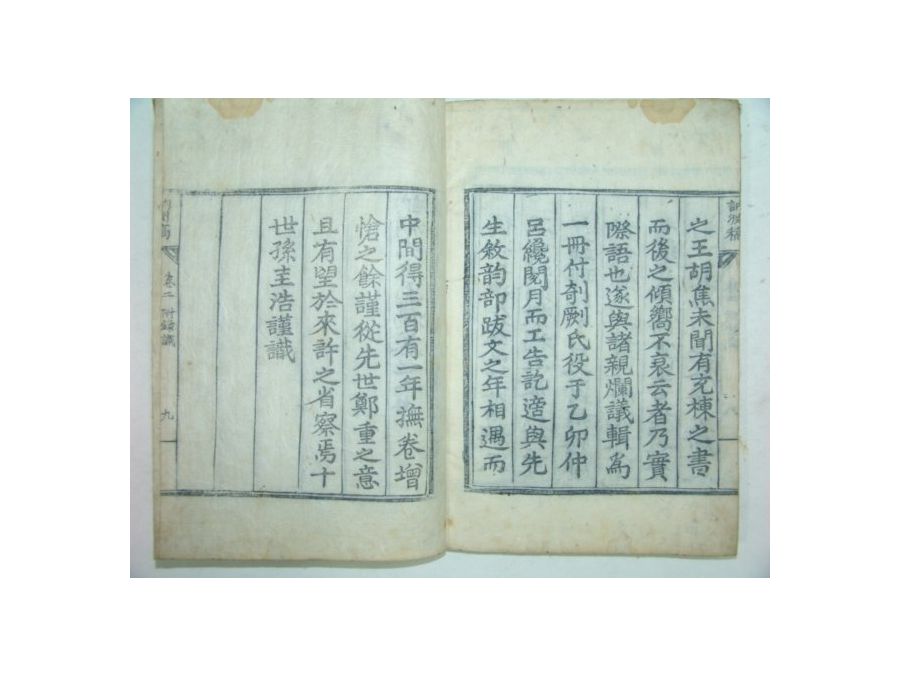 之王胡焦未間有充棟之書
而後之傾嚮不衰云者乃實
際語也遂與諸親爛議輯為
一冊付剞劂氏役于乙卯仲
呂纔閱月而工告訖適與先
生敘韵部跋文之年相遇而
中間得三百有一年撫卷增
愴之餘謹從先世鄭重之意
且有望於來許之省察焉十
世孫圭浩謹識
卷二 附錄識
九